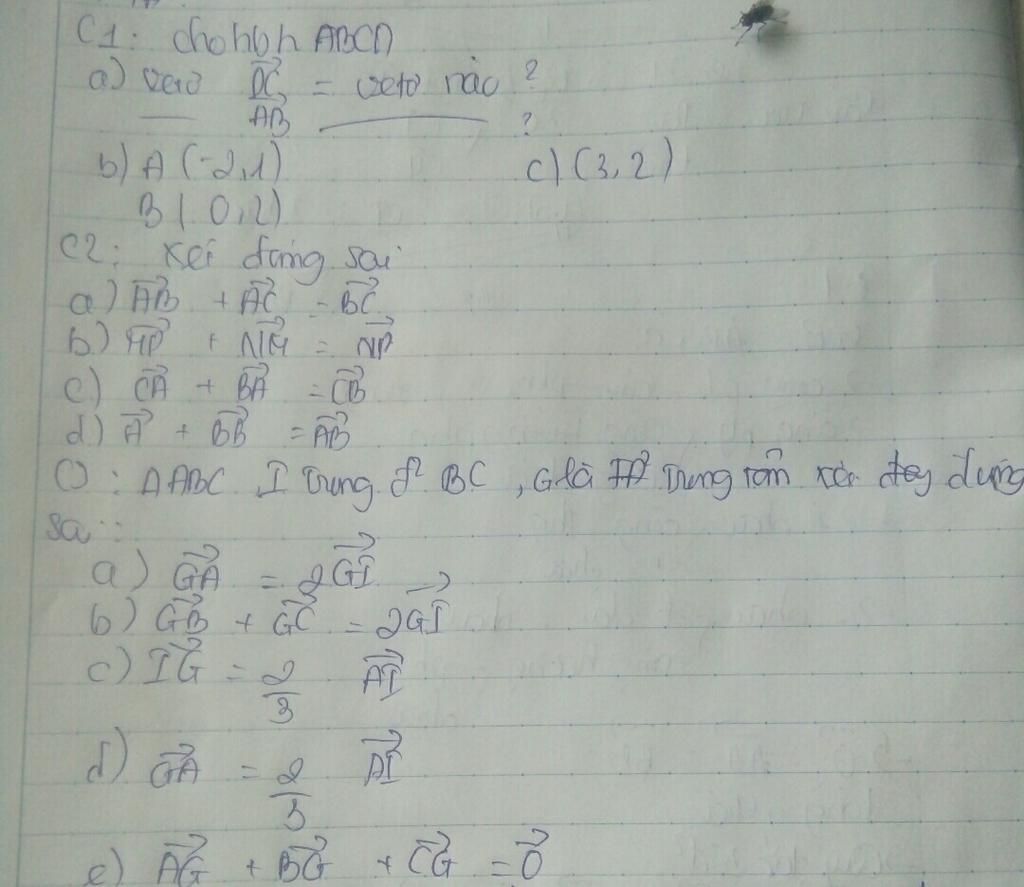 C1: cho hbh ABCD
a) vectơ DC⃗ = vectơ nào ?
AB⃗ ?
b) A (-2,1) c) (3,2)
B ( 0,2)
C2: Xét đúng sai
a) AB⃗ + AC⃗ = BC⃗
b) MP⃗ + NM⃗ = NP⃗
c) CA⃗ + BA⃗ = CB⃗
d) A⃗ + BB⃗ = AB⃗
: ΔABC I trung đ² BC, G là trung tâm xét đúng
sai:
a) GA⃗ = 2GI⃗
b) GB⃗ + GC⃗ = 2GI⃗
c) IG⃗ = 2/3 AI⃗
d) GA⃗ = 2/3 AI⃗
e) AG⃗ + BG⃗ + CG⃗ = O⃗